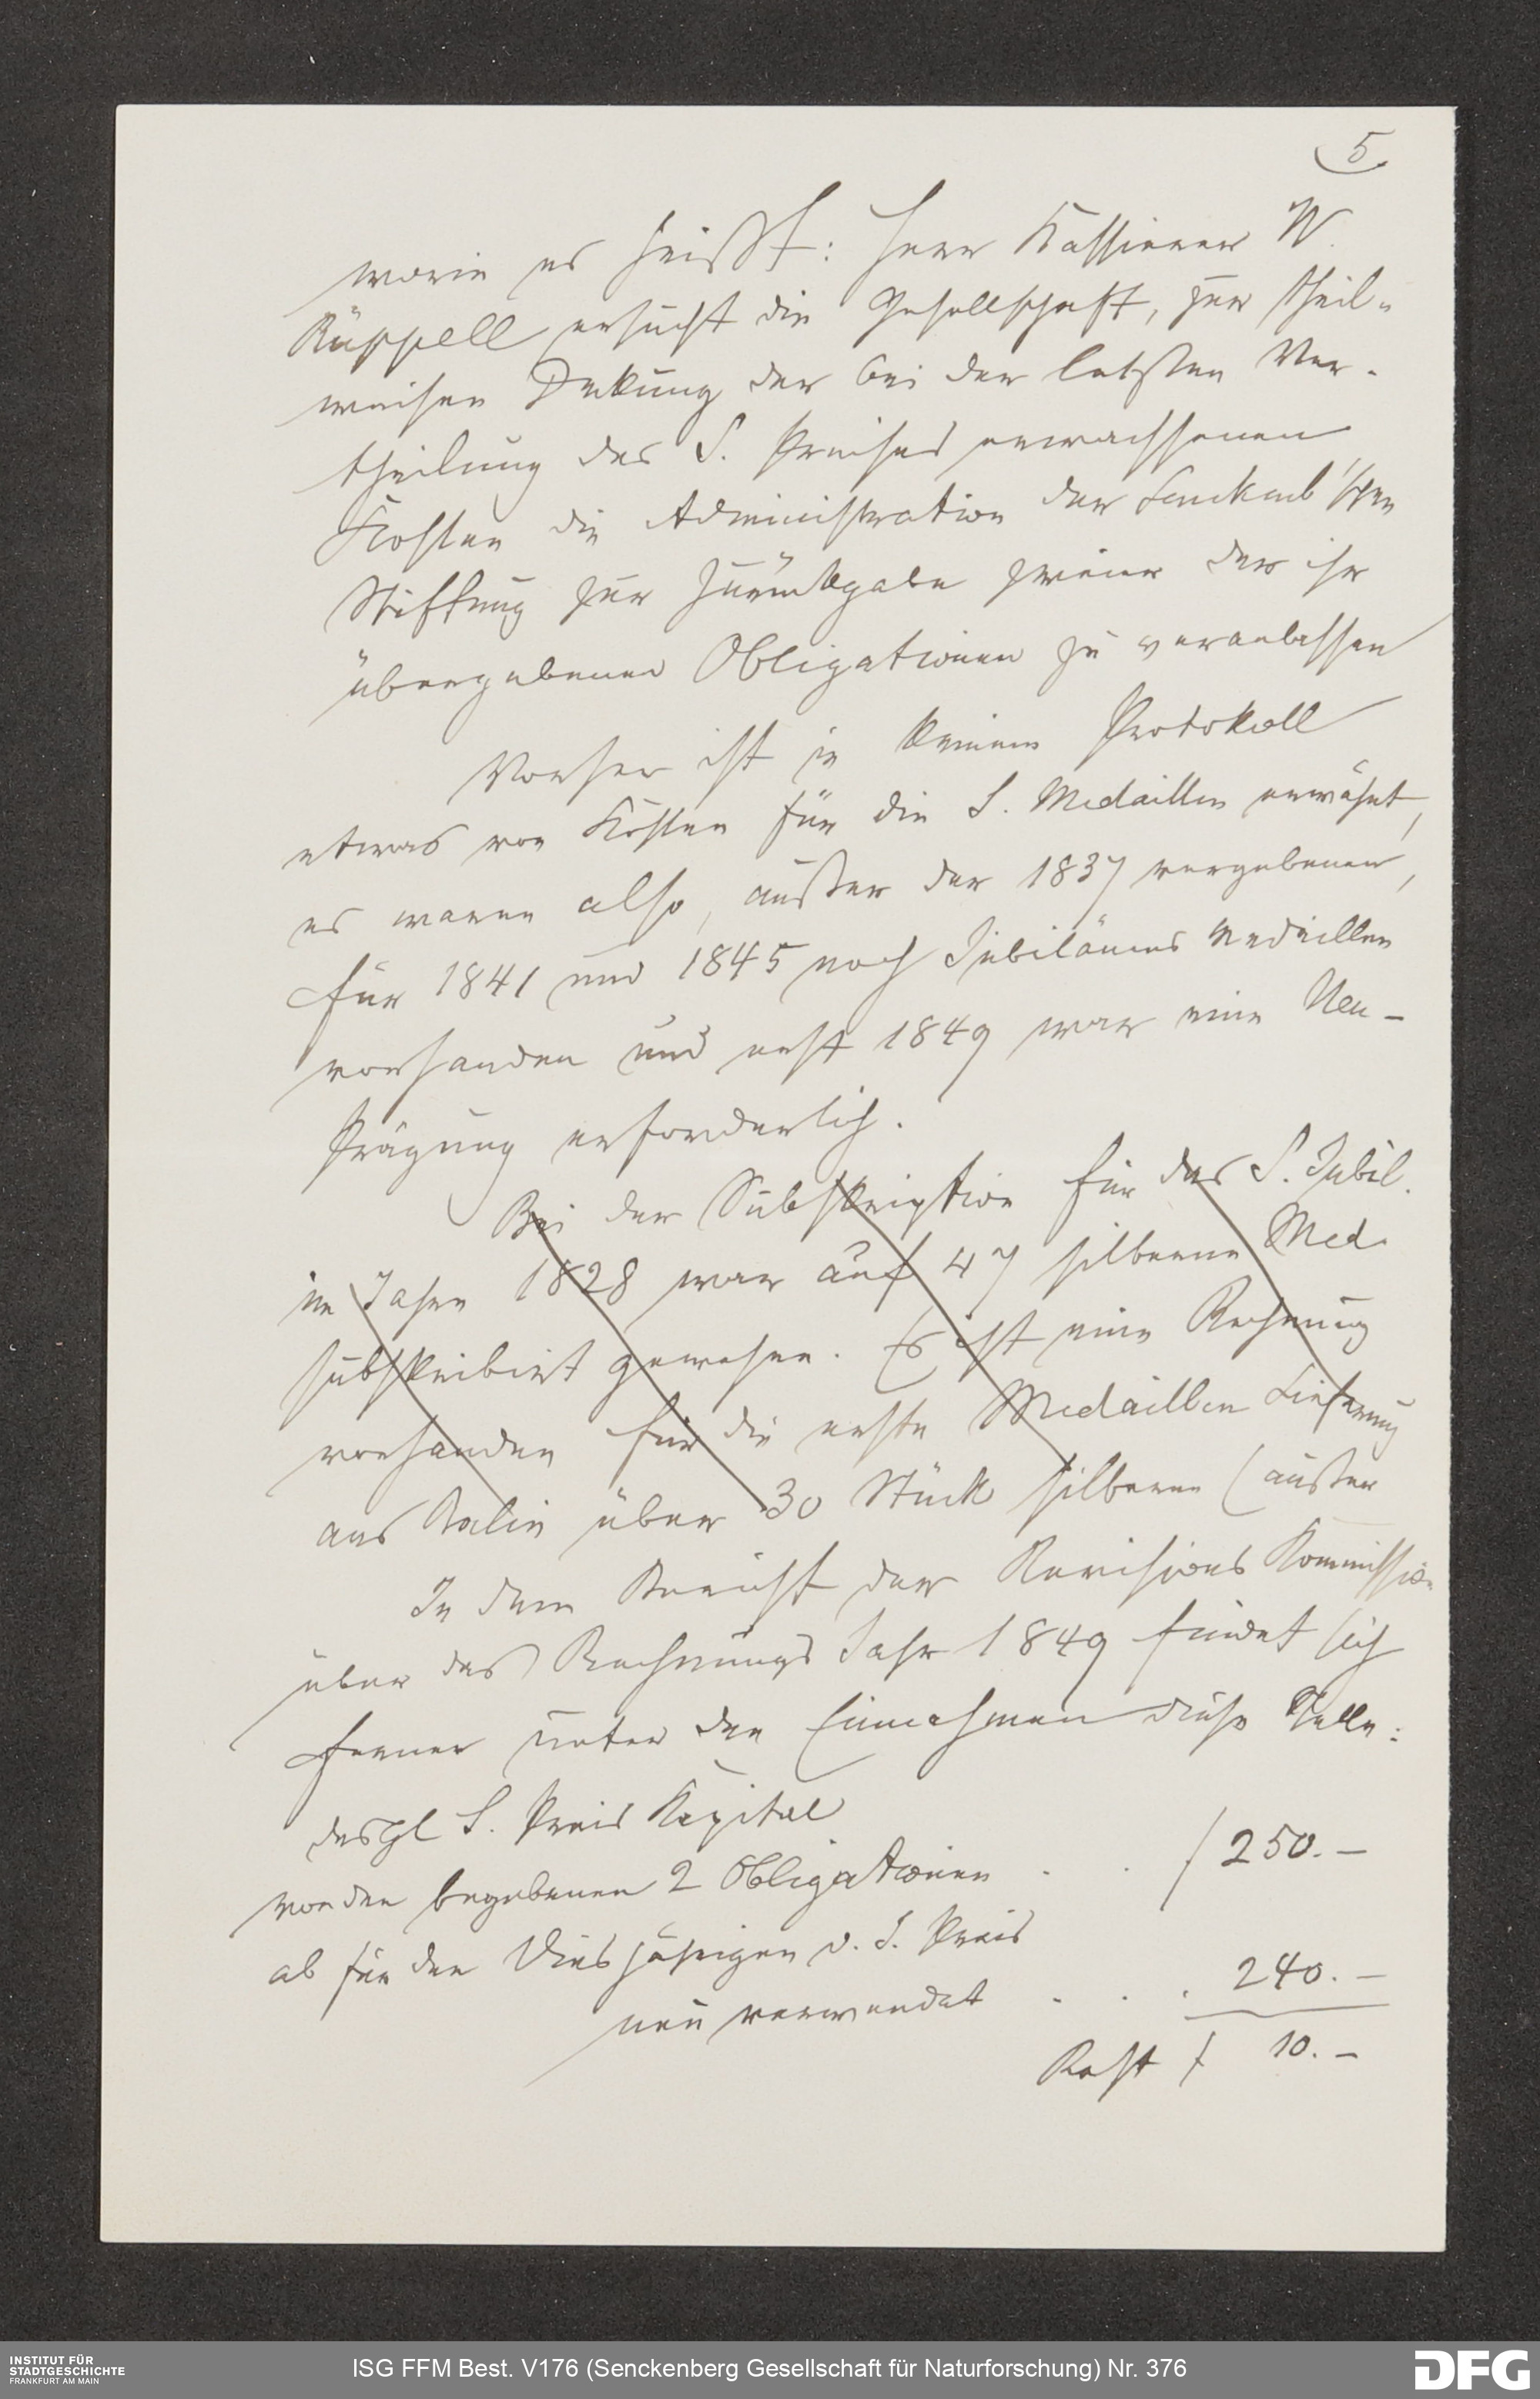 5.
worin es heisst: Herr Kassierer W.
Rüppell ersucht die Gesellschaft, zur theil-
weisen Dekung der bei der letzten Ver-
theilung des S. Preises erwachsenen
Kosten die Administration der Senckenb'schen
Stiftung zur Zurückgabe zweier der ihr
übergebenen Obligationen zu veranlassen
Vorher ist in keinem Protokoll
etwas von Kosten für die S. Medaillen erwähnt,
es waren also, ausser der 1837 vergebenen,
für 1841 und 1845 noch Jubiläums Medaillen
vorhanden und erst 1849 war eine Neu-
Prägung erforderlich.
Bei der Subskription für das S. Jubil.
im Jahre 1828 war auf 47 silberne Med.
subskribirt gewesen. Es ist eine Rechnung
vorhanden für die erste Medaillen Lieferung
aus Berlin über 30 Stück silberne (ausser
In dem Bericht der Revisions Kommission
über das Rechnungs Jahr 1849 findet sich
ferner unter den Einnahmen diese Stelle:
desgl S. Preis Kapital
von den begebenen 2 Obligationen . . f 250.–
ab für den diesjährigen v. S. Preis
neu verwendet . . . 240.–
Rest f 10.–
INSTITUT FÜR
STADTGESCHICHTE
FRANKFURT AM MAIN
ISG FFM Best. V176 (Senckenberg Gesellschaft für Naturforschung) Nr. 376
DFG